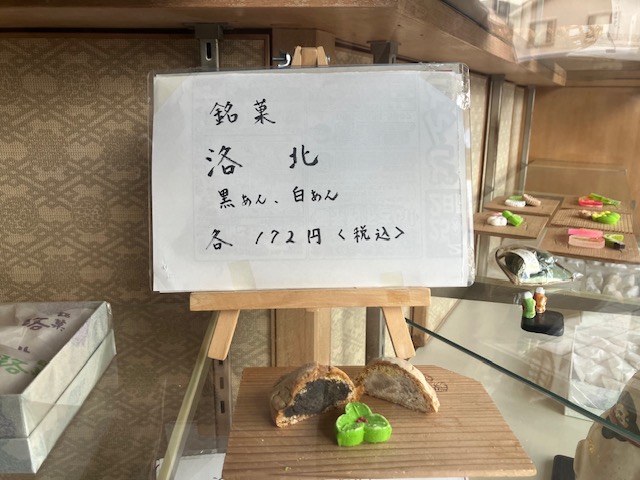 銘菓
洛北
黒あん、白あん
各 172円<税込>
銘菓
洛北